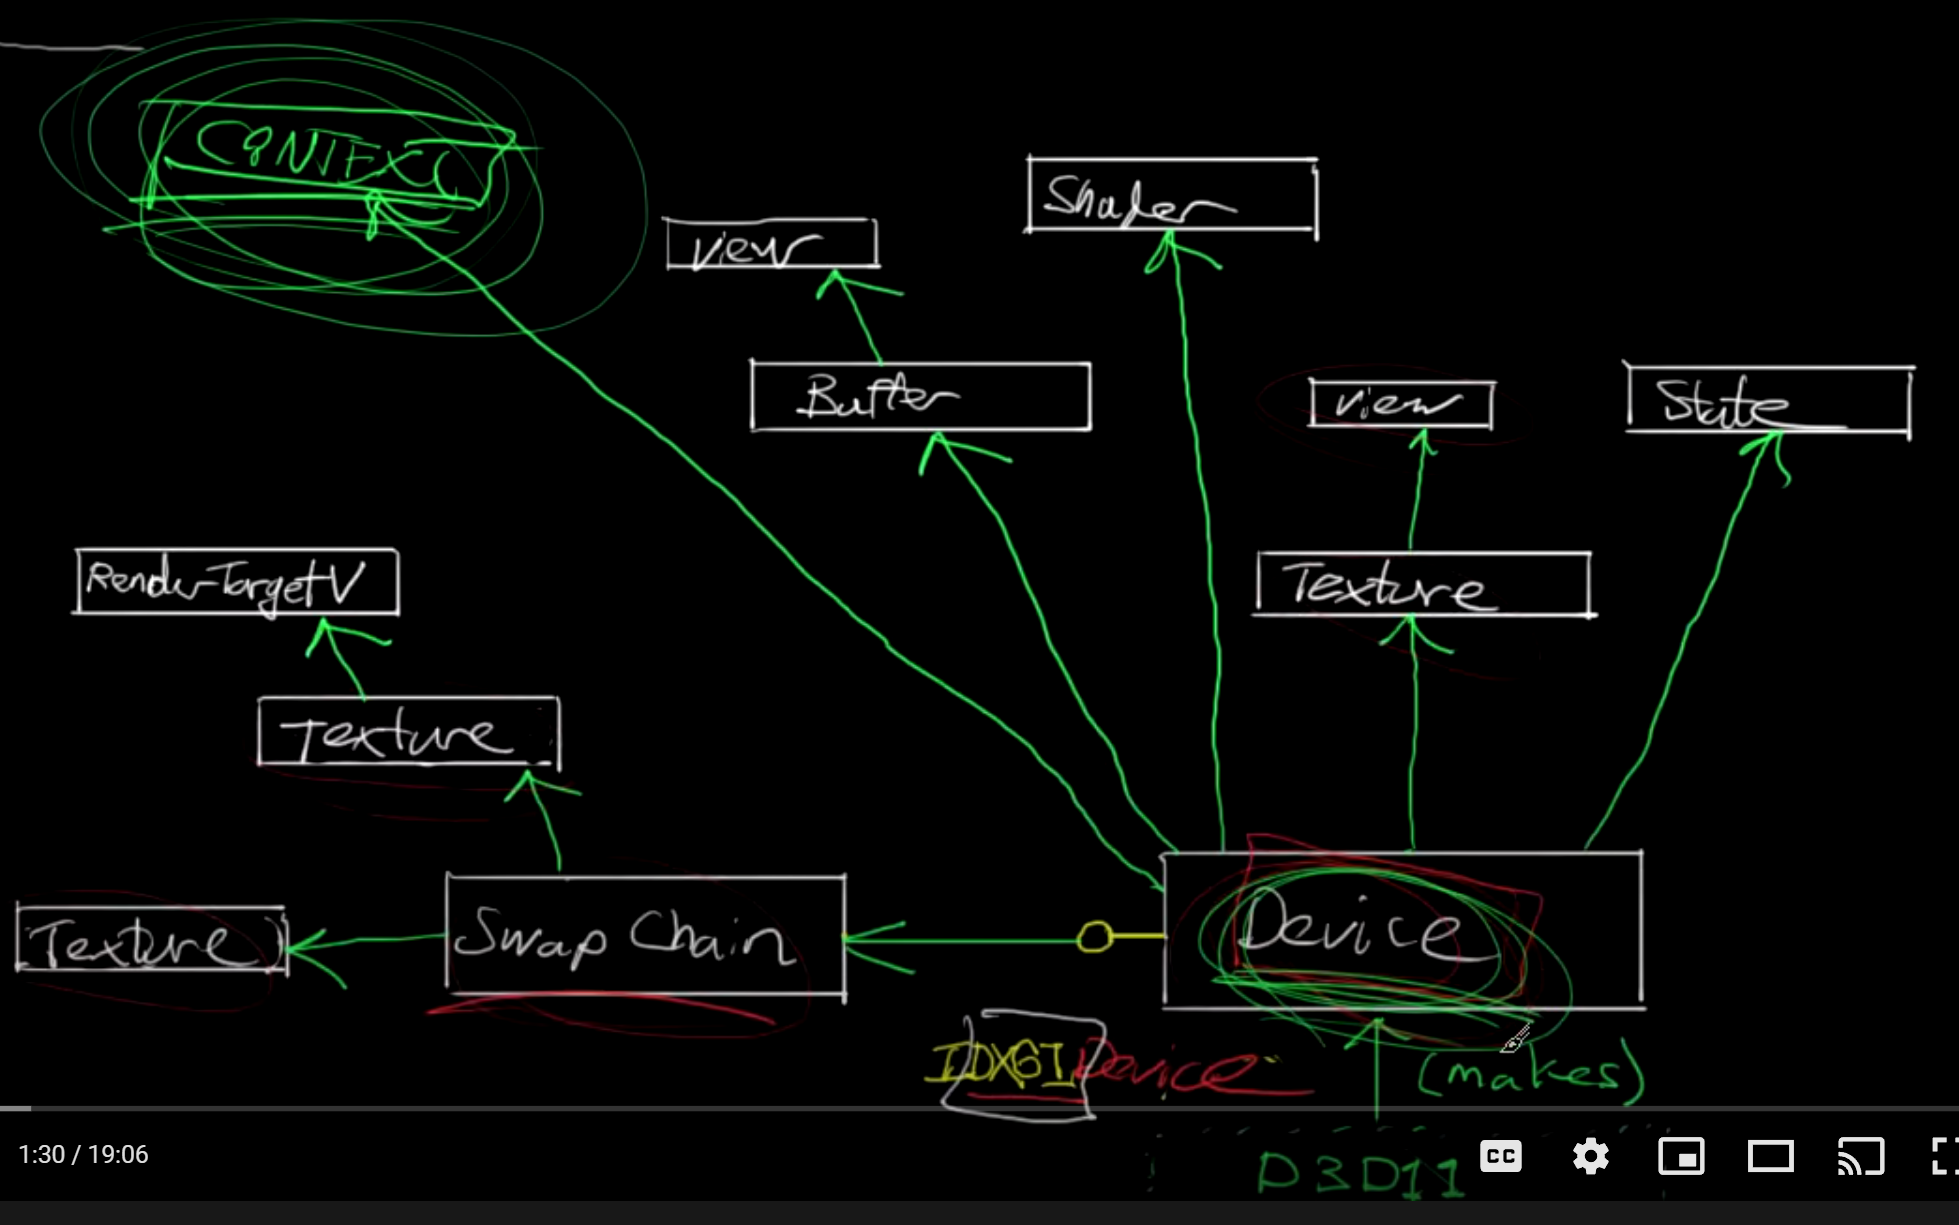 CONTEXT
Shader
View
Buffer
View
State
Render-TargetV
Texture
Texture
Texture
Swap Chain
Device
IDXGIDevice
(makes)
1:30 / 19:06
CC
D3D11